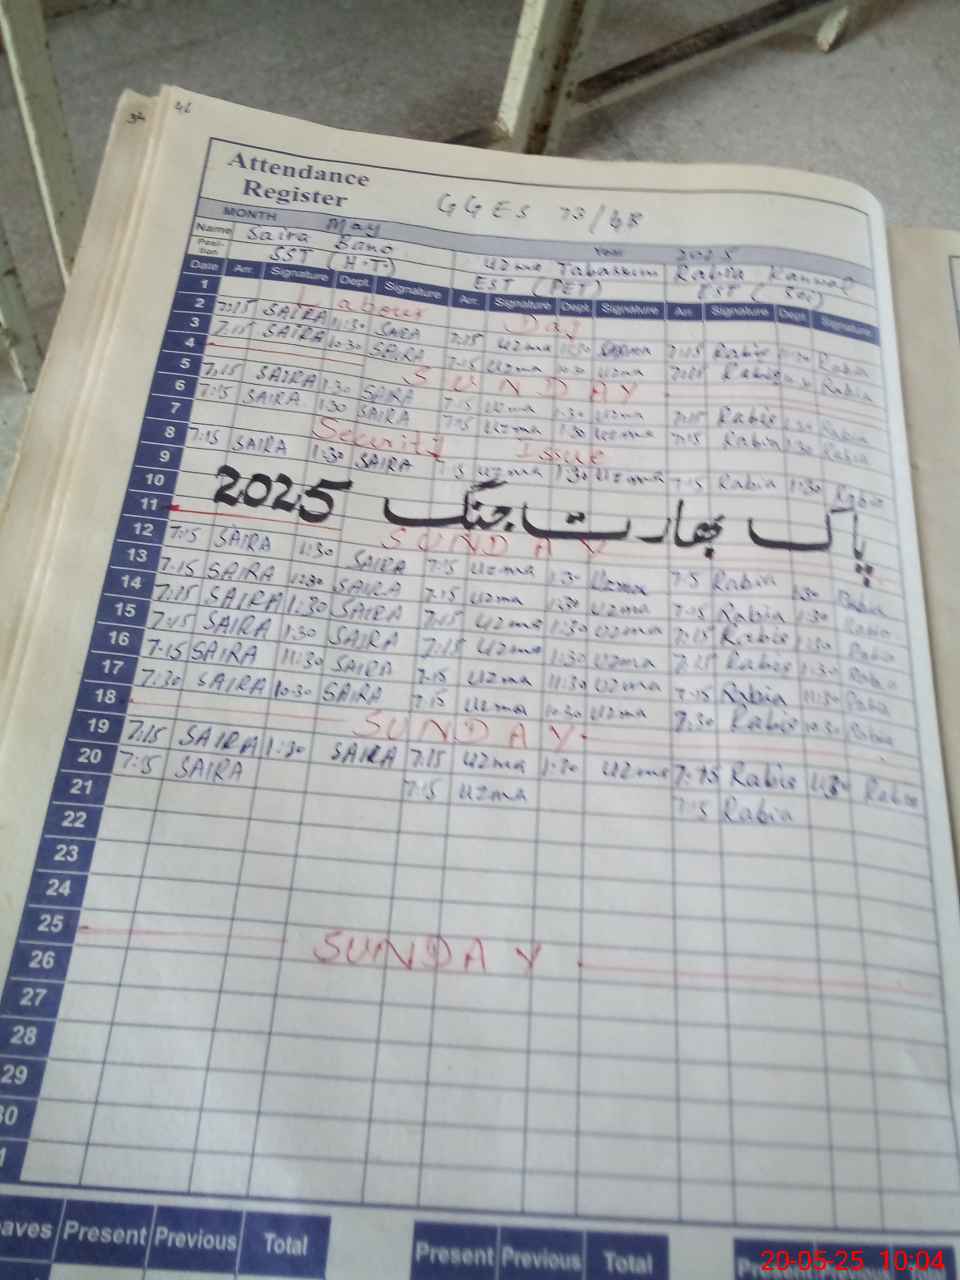 Attendance
Register
GGES 73/GB
MONTH May Year 2025
Name Saira Bano Uzma Tabassum Rabia Kanwal
Posi-tion SST (H.T.) EST (PET) EST (
Date Arr. Signature Dept. Signature Arr. Signature Dept. Signature Arr. Signature Dept. Signature
1 Labour Day
2 7:15 SAIRA 11:30 SAIRA 7:15 Uzma 7:15 Rabia Rabia
3 7:15 SAIRA 10:30 SAIRA 7:15 Uzma 10:30 Uzma 7:15 Rabia Rabia
4 SUNDAY
5 7:15 SAIRA 1:30 SAIRA 7:15 Uzma 1:30 Uzma 7:15 Rabia 1:30 Rabia
6 7:15 SAIRA 1:30 SAIRA 7:15 Uzma 1:30 Uzma 7:15 Rabia 1:30 Rabia
7 Security Issue
8 7:15 SAIRA 1:30 SAIRA Uzma 1:30 Uzma 7:15 Rabia 1:30 Rabia
9
10 پاک بھارت جنگ 2025
11 SUNDAY
12 7:15 SAIRA 1:30 SAIRA 7:15 Uzma 1:30 Uzma Rabia 1:30 Rabia
13 7:15 SAIRA 1:30 SAIRA 7:15 Uzma 1:30 Uzma 7:15 Rabia 1:30 Rabia
14 7:15 SAIRA 1:30 SAIRA 7:15 Uzma 1:30 Uzma 7:15 Rabia 1:30 Rabia
15 7:15 SAIRA 1:30 SAIRA 7:15 Uzma 1:30 Uzma 7:15 Rabia 1:30 Rabia
16 7:15 SAIRA 11:30 SAIRA 7:15 Uzma 11:30 Uzma 7:15 Rabia 11:30 Rabia
17 7:30 SAIRA 10:30 SAIRA 7:15 Uzma 10:30 Uzma 7:30 Rabia 10:30 Rabia
18 SUNDAY
19 7:15 SAIRA 1:30 SAIRA 7:15 Uzma 1:30 Uzma 7:15 Rabia 1:30 Rabia
20 7:15 SAIRA 7:15 Uzma 7:15 Rabia
21
22
23
24
25 SUNDAY
26
27
28
29
30
Present Previous Total Present Previous Total
20-05-25 10:04